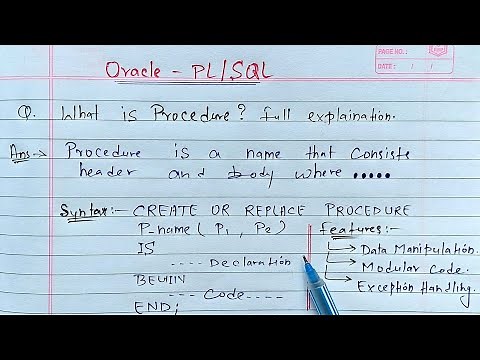 PAGE NO.:
DATE: / /
Oracle - PL/SQL
Q. What is Procedure? full explaination.
Ans:→ Procedure is a name that consists
header and body where .....
Syntax:- CREATE OR REPLACE PROCEDURE
P_name (P1, P2)
IS
---- Declaration
BEGIN
--- Code ----
END;
features:-
→ Data Manipulation.
→ Modular Code.
→ Exception Handling.